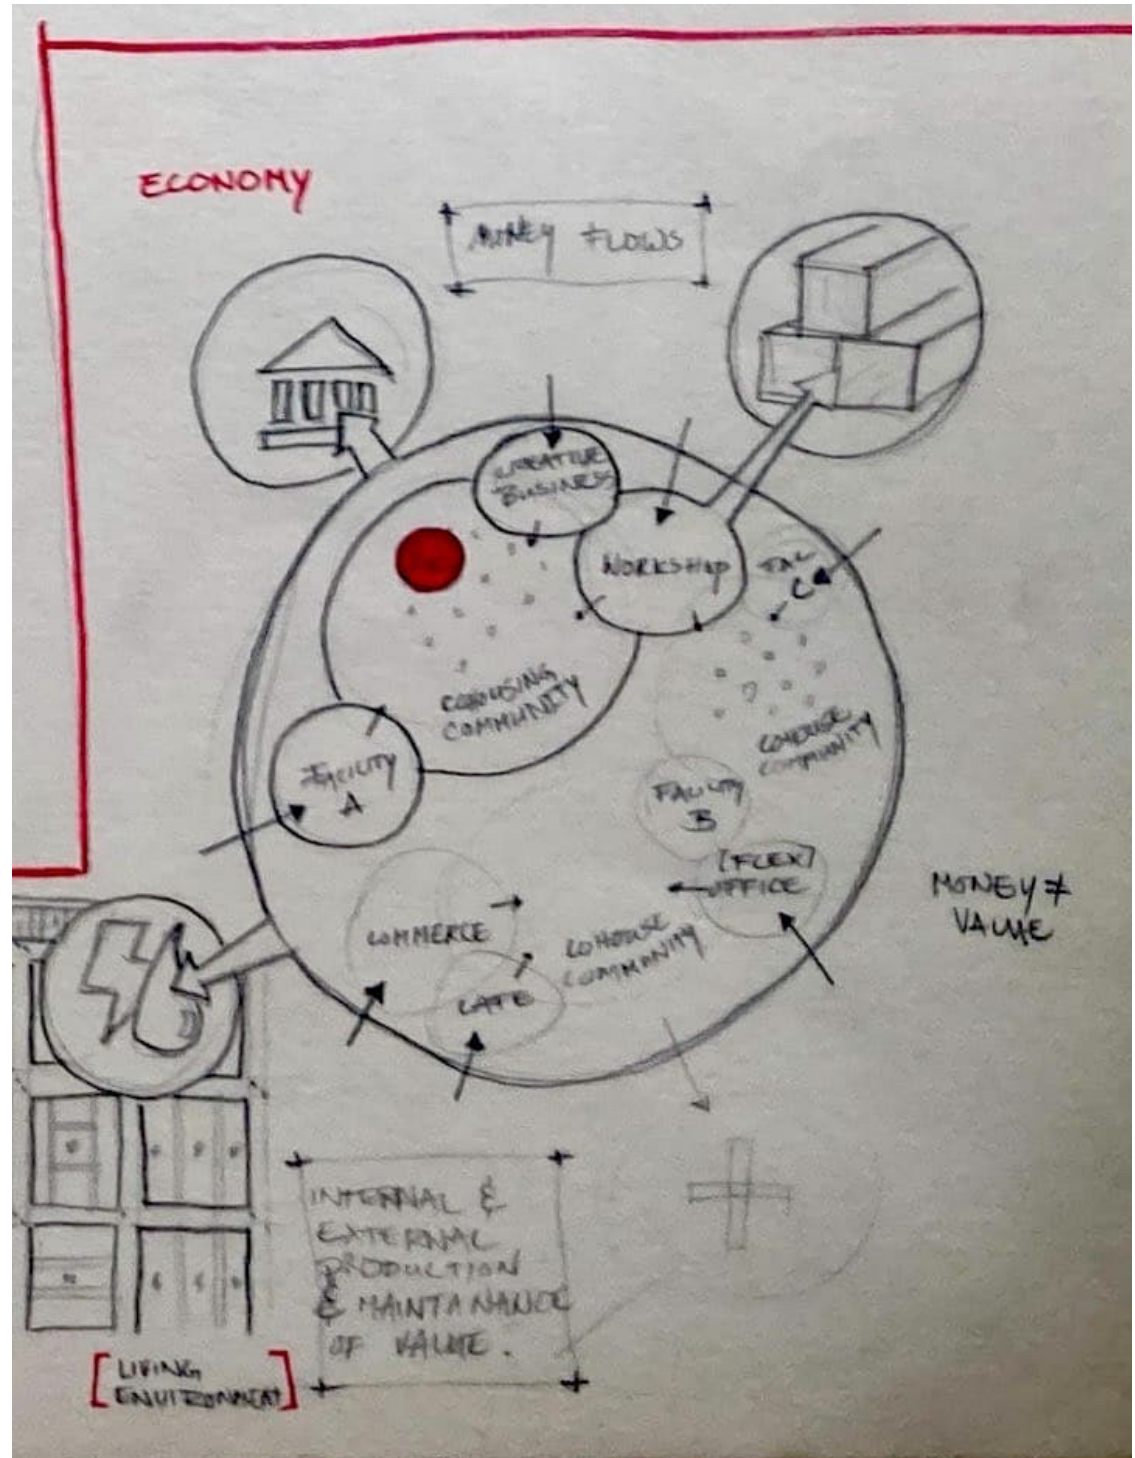 ECONOMY
MONEY FLOWS
CREATIVE
BUSINESS
WORKSHOP
FAC
C
COHOUSING
COMMUNITY
COHOUSE
COMMUNITY
FACILITY
A
FACILITY
B
[FLEX]
OFFICE
MONEY ≠
VALUE
COMMERCE
COHOUSE
COMMUNITY
CAFE
INTERNAL &
EXTERNAL
PRODUCTION
& MAINTANANCE
OF VALUE.
[LIVING
ENVIRONMENT]